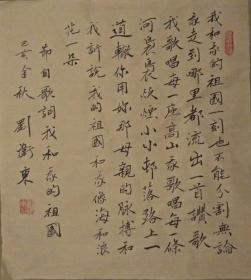 我和我的祖國一刻也不能分割無論
我走到哪里都流出一首讚歌
我歌唱每一座高山我歌唱每一條
河裊裊炊煙小小邨落路上一
道轍你用妳那母親的脉搏和
我訴說我的祖國和我像海和浪
花一朵
節自歌詞我和我的祖國
己亥金秋 劉衛東